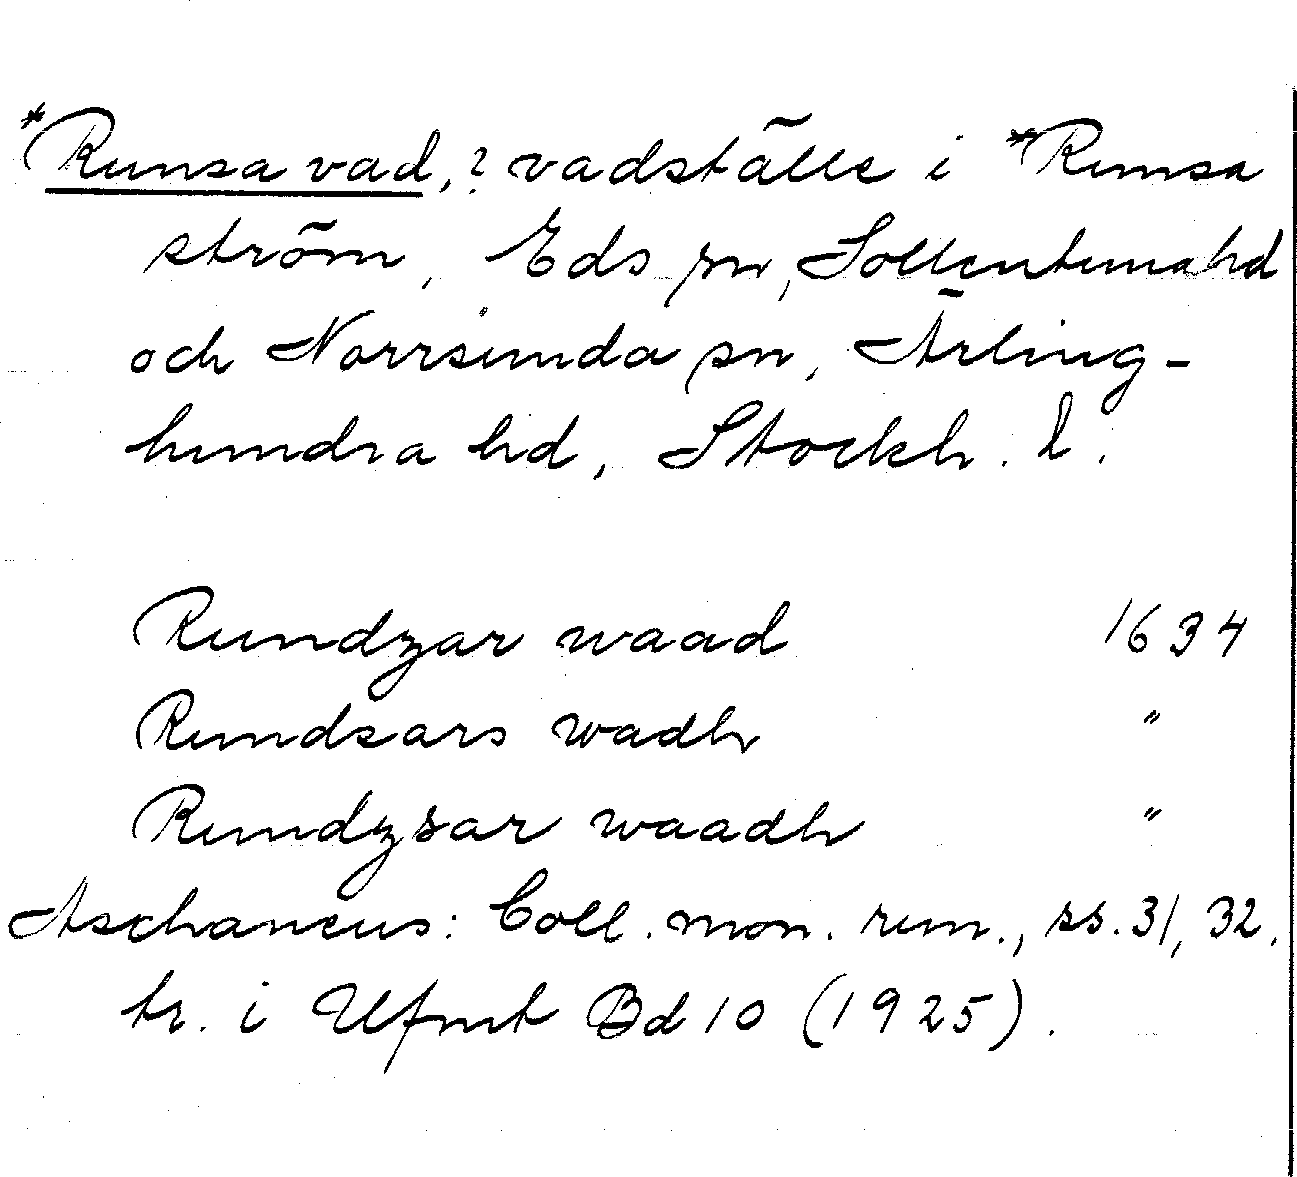 *Runsa vad, ? vadställe i *Runsa
ström, Eds sn, Sollentuna hd
och Norrsunda sn, Ärling-
hundra hd, Stockh. l.
Rundzar waad 1634
Rundsars wadh "
Rundzsar waadh "
Aschaneus: Coll. mon. run., ss. 31, 32.
tr. i Ufmt Bd 10 (1925).